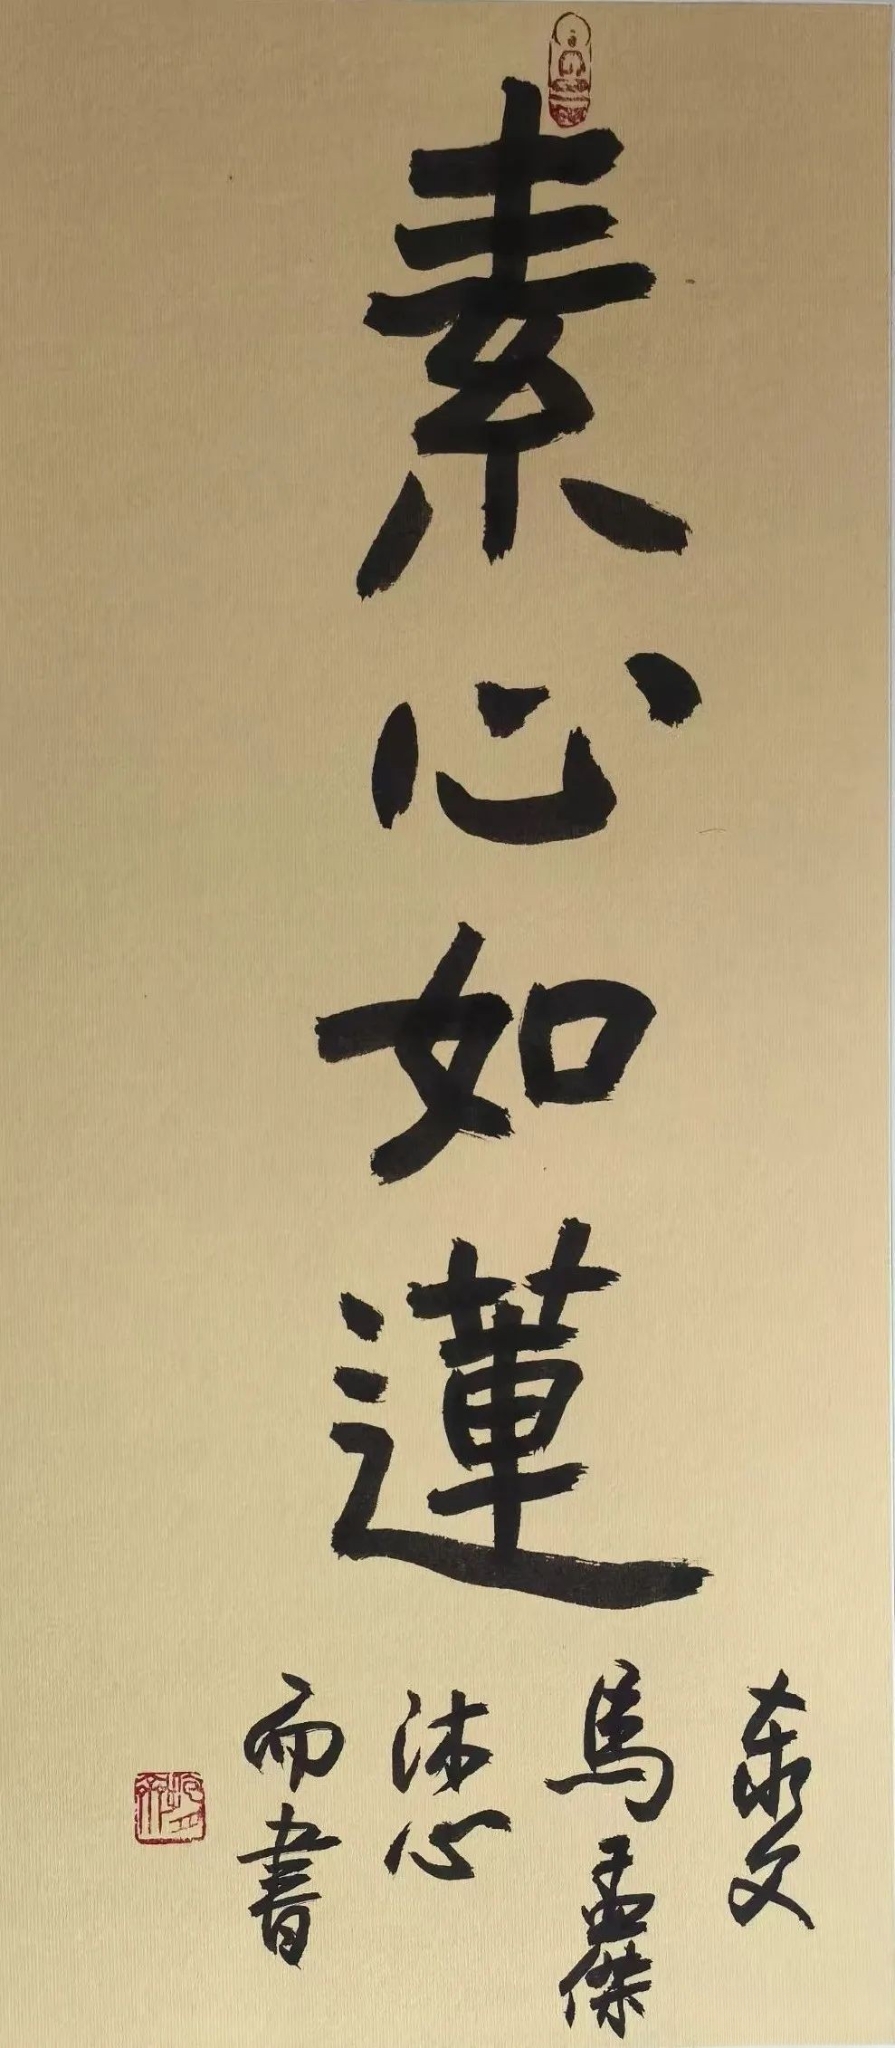 素心如蓮
馬孟傑
沐心
而書